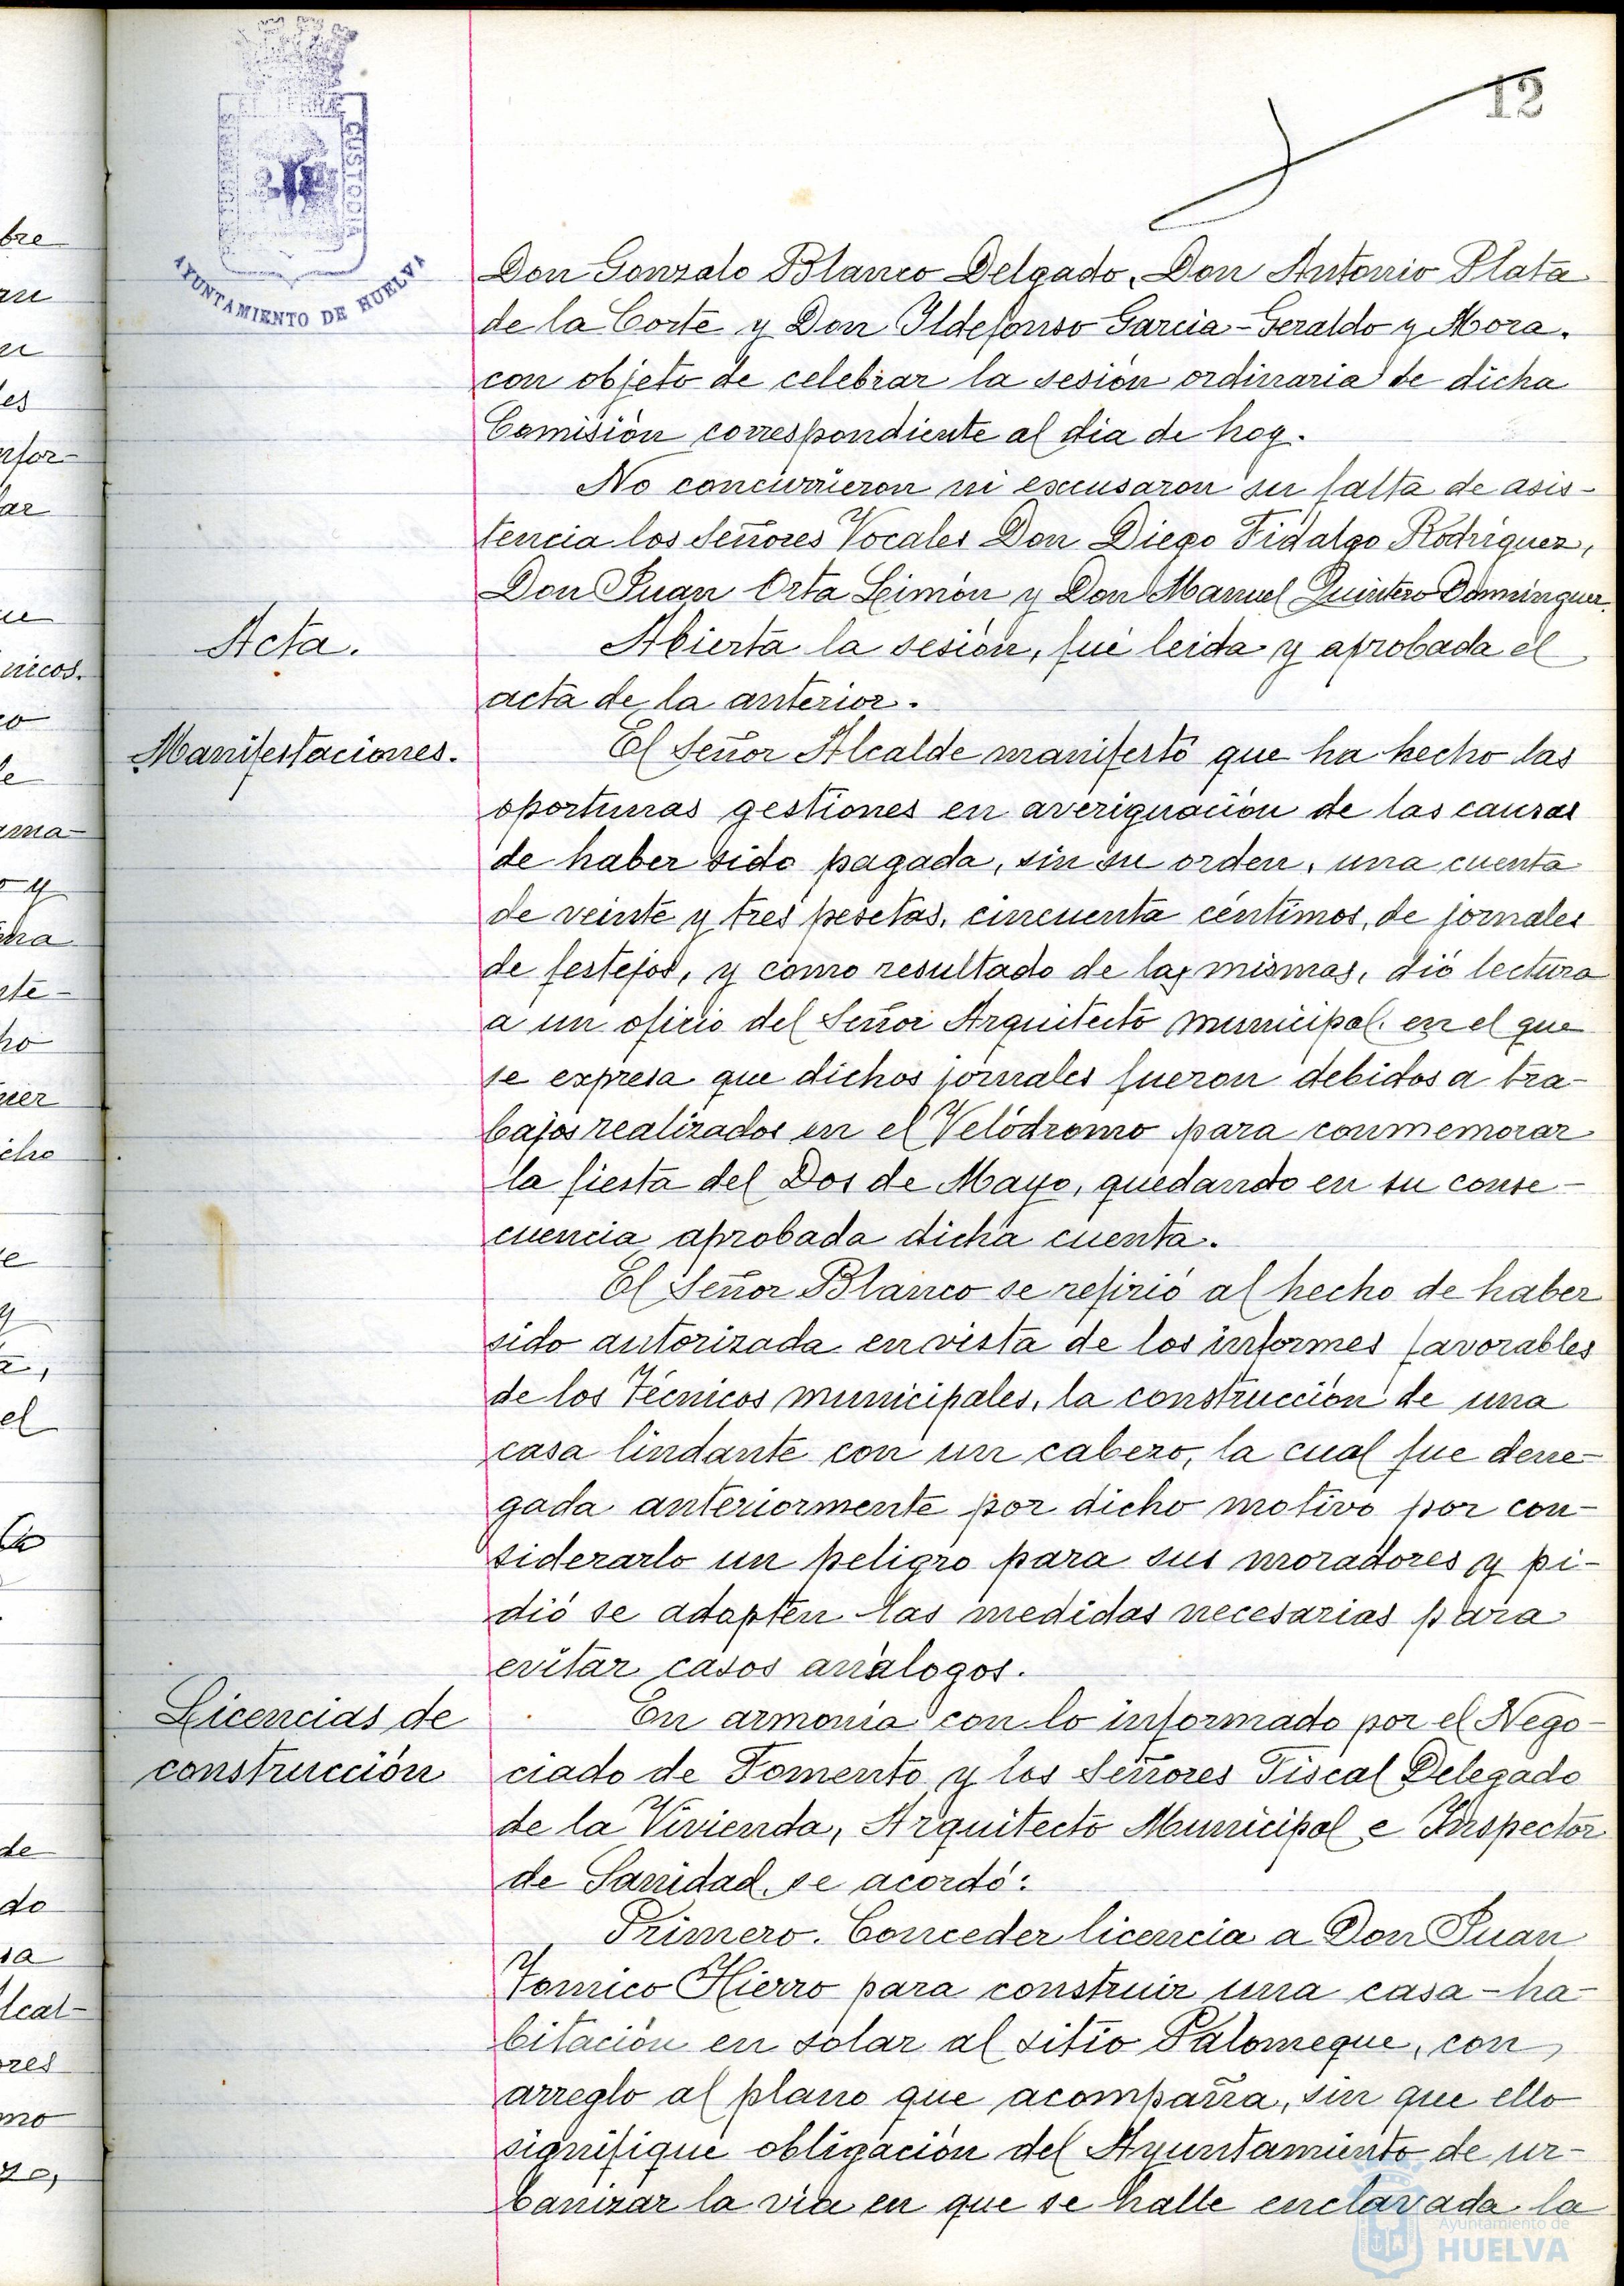 12
CUSTODIA
AYUNTAMIENTO DE HUELVA
Don Gonzalo Blanco Delgado, Don Antonio Plata
de la Corte y Don Ildefonso Garcia-Geraldo y Mora,
con objeto de celebrar la sesión ordinaria de dicha
Comisión correspondiente al dia de hoy.
No concurrieron ni excusaron su falta de asis-
tencia los Señores Vocales Don Diego Fidalgo Rodriguez,
Don Juan Orta Limón y Don Manuel Quintero Dominguez.
Acta.
Abierta la sesión, fué leida y aprobada el
acta de la anterior.
Manifestaciones.
El Señor Alcalde manifestó que ha hecho las
oportunas gestiones en averiguación de las causas
de haber sido pagada, sin su orden, una cuenta
de veinte y tres pesetas, cincuenta céntimos, de jornales
de festejos, y como resultado de las mismas, dió lectura
a un oficio del Señor Arquitecto municipal, en el que
se expresa que dichos jornales fueron debidos a tra-
bajos realizados en el Velódromo para conmemorar
la fiesta del Dos de Mayo, quedando en su conse-
cuencia aprobada dicha cuenta.
El Señor Blanco se refirió al hecho de haber
sido autorizada en vista de los informes favorables
de los Técnicos municipales, la construcción de una
casa lindante con un cabezo, la cual fue dene-
gada anteriormente por dicho motivo por con-
siderarlo un peligro para sus moradores y pi-
dió se adopten las medidas necesarias para
evitar casos análogos.
Licencias de
construcción
En armonía con lo informado por el Nego-
ciado de Fomento y los Señores Fiscal Delegado
de la Vivienda, Arquitecto Municipal e Inspector
de Sanidad, se acordó:
Primero. Conceder licencia a Don Juan
Tornico Hierro para construir una casa-ha-
bitación en solar al sitio Palomeque, con
arreglo al plano que acompaña, sin que ello
signifique obligación del Ayuntamiento de ur-
banizar la via en que se halle enclavada la
Ayuntamiento de
HUELVA